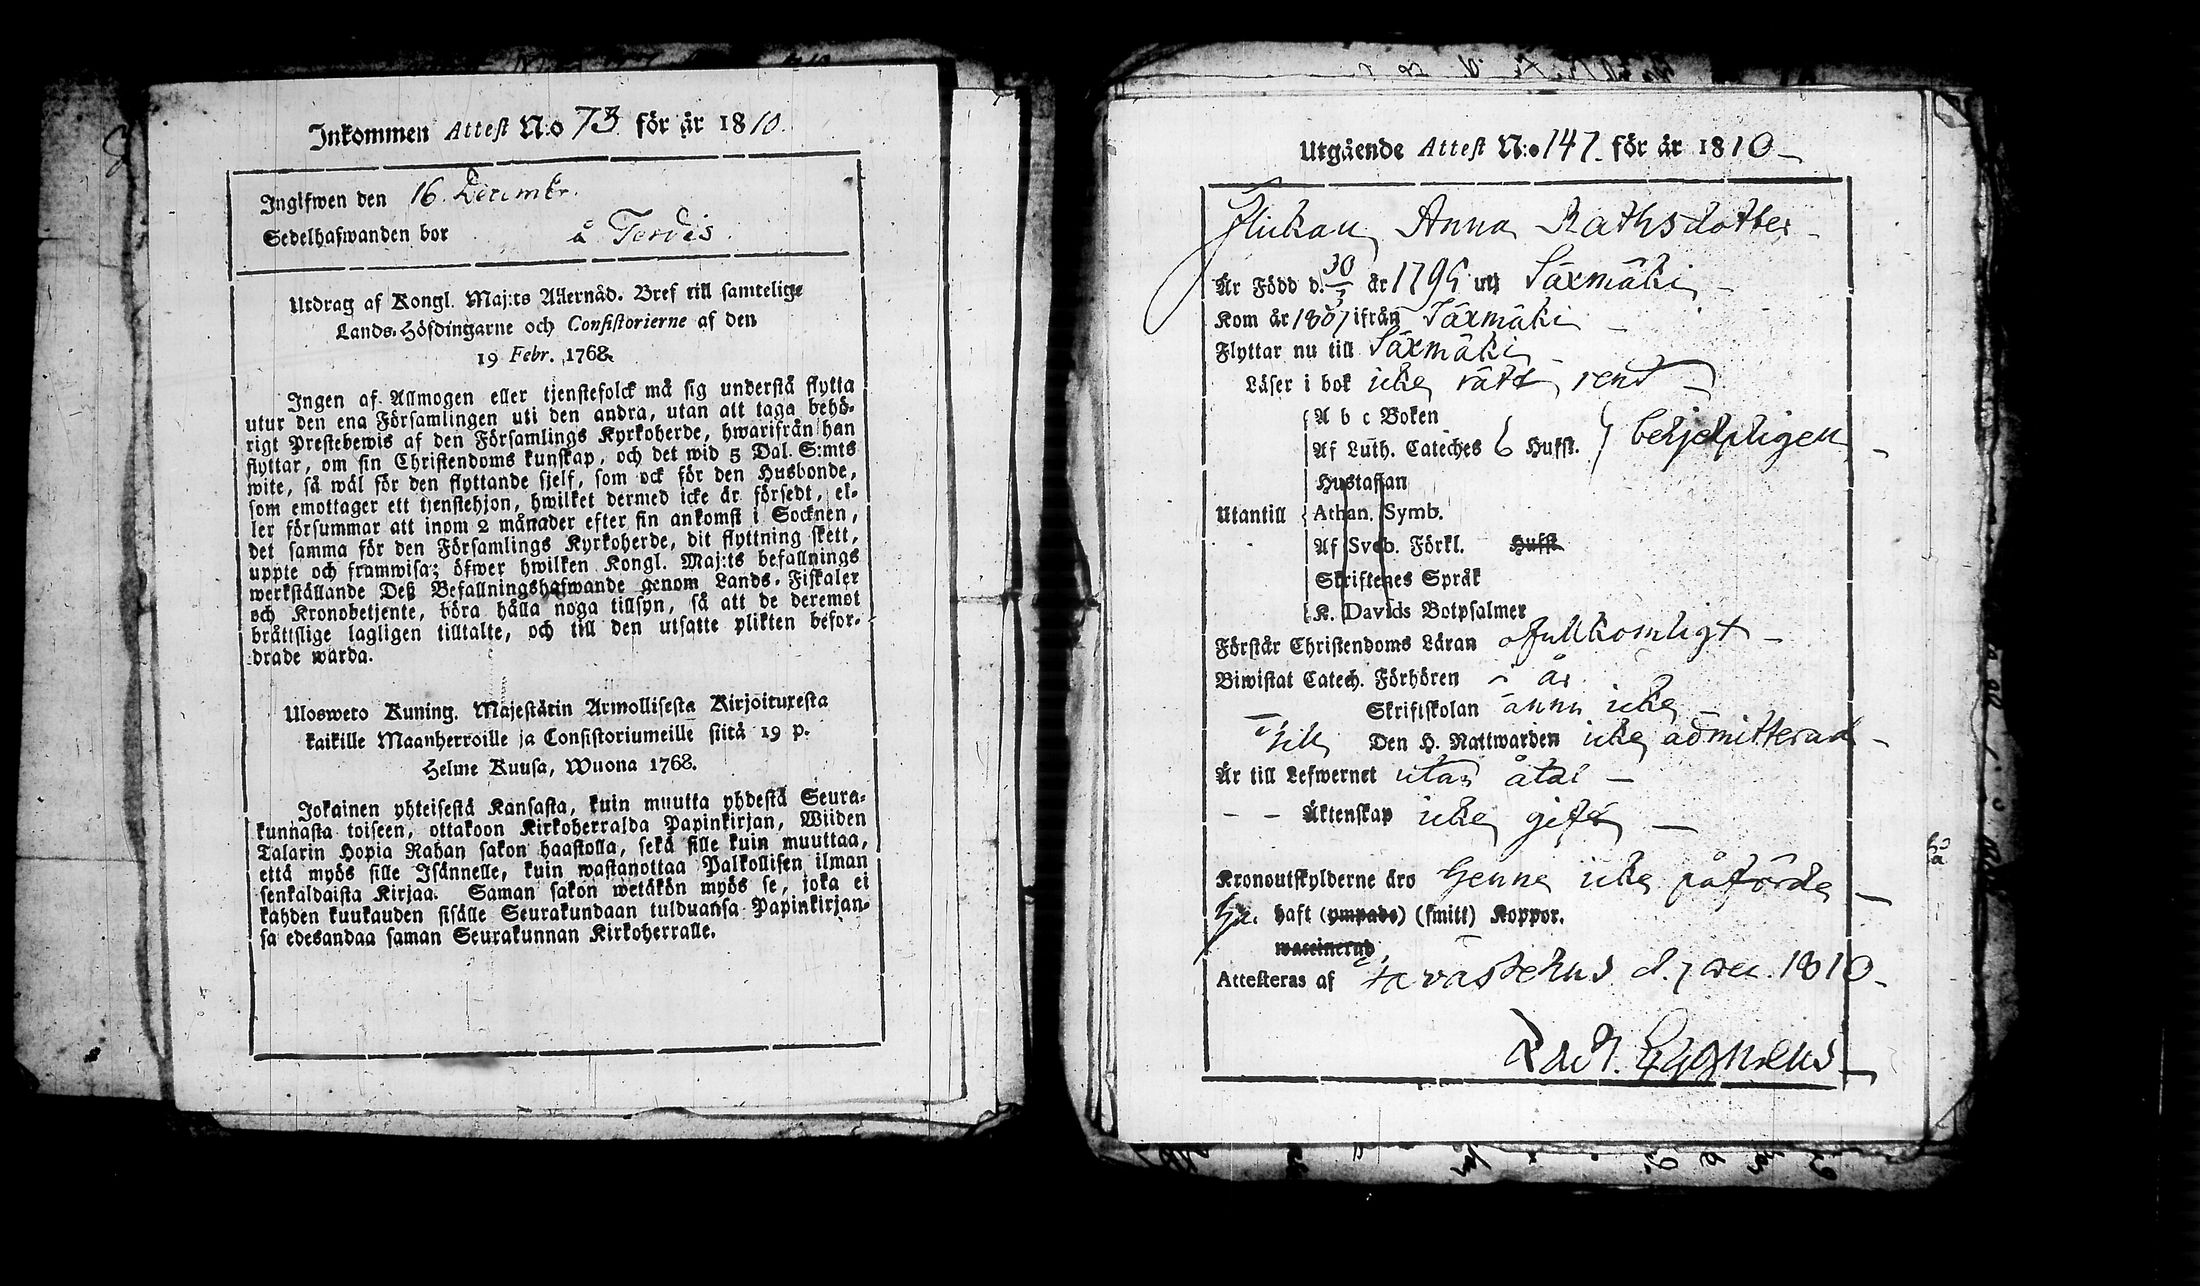 Inkommen Attest N:o 73 för år 1810.
Ingifwen den 16 Decembr.
Sedelhafwanden bor å Tervis.
Utdrag af Kongl. Maj:ts Allernåd. Bref till samtelige
Lands-Höfdingarne och Consistorierne af den
19 Febr. 1768.
Ingen af Allmogen eller tjenstefolck må sig understå flytta
utur den ena Församlingen uti den andra, utan att taga behö-
rigt Prestebewis af den Församlings Kyrkoherde, hwarifrån han
flyttar, om sin Christendoms kunskap, och det wid 5 Dal. S:mts
wite, så wäl för den flyttande sjelf, som ock för den Husbonde,
som emottager ett tjenstehjon, hwilket dermed icke är försedt, el-
ler försummar att inom 2 månader efter sin ankomst i Socknen,
det samma för den Församlings Kyrkoherde, dit flyttning skett,
uppte och framwisa; öfwer hwilken Kongl. Maj:ts befallnings
werkställande Deß Befallningshafwande genom Lands-Fiskaler
och Kronobetjente, böra hålla noga tillsyn, så att de deremot
bråttslige lagligen tilltalte, och till den utsatte plikten befor-
drade warda.
Ulosweto Kuning. Majestätin Armollisesta Kirjoituxesta
kaikille Maanherroille ja Consistoriumeille siitä 19 p.
Helme Kuusa, Wuona 1768.
Jokainen yhteisestä Kansasta, kuin muutta yhdestä Seura-
kunnasta toiseen, ottakoon Kirkoherralda Papinkirjan, Wiiden
Talarin Hopia Rahan sakon haastolla, sekä sille kuin muuttaa,
että myös sille Isännelle, kuin wastanottaa Palkollisen ilman
senkaldaista Kirjaa. Saman sakon wetäkön myös se, joka ei
kahden kuukauden sisälle Seurakundaan tulduansa Papinkirjan-
sa edesandaa saman Seurakunnan Kirkoherralle.
Utgående Attest N:o 147. för år 1810
Flickan Anna Mathsdotter
Är Född d. 30/3 år 1795 uti Säxmäki
Kom år 1807 ifrån Säxmäki
Flyttar nu till Säxmäki
Läser i bok icke rätt rent
A b c Boken
Af Luth. Cateches 6 Hufst. behjelpligen
Hustaflan
Utantill Athan. Symb.
Af Sveb. Förkl. Hufst
Skriftenes Språk
K. Davids Botpsalmer
Förstår Christendoms Läran ofullkomligt
Biwistat Catech. Förhören i år
Skriftskolan ännu icke
Till Den H. Nattwarden icke admitterad
Är till Lefwernet utan åtal
Äktenskap icke gift
Kronoutskylderne äro henne icke påförde
Har haft (ympade) (smitt) Koppor.
waccinerad
Attesteras af Tavastehus d. 7 Dec. 1810
Zach. Cygnæus